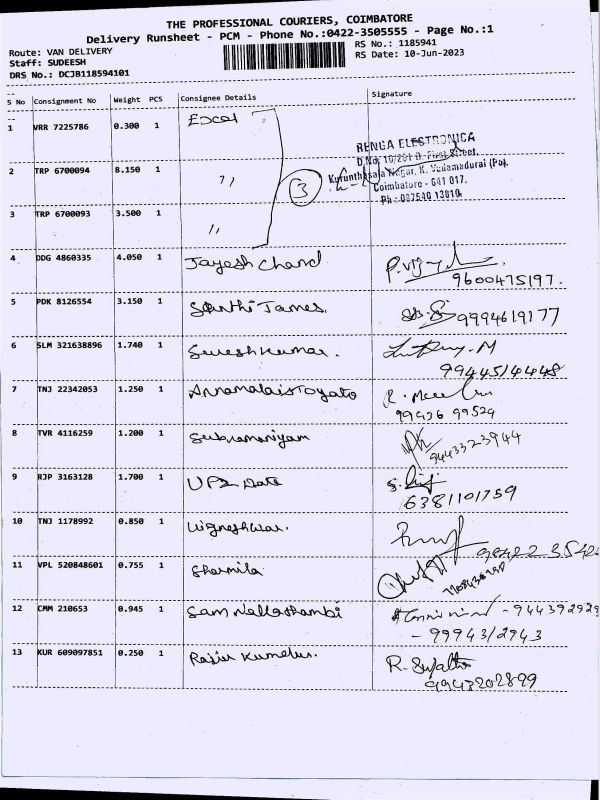 THE PROFESSIONAL COURIERS, COIMBATORE
Delivery Runsheet - PCM - Phone No.:0422-3505555 - Page No.:1
Route: VAN DELIVERY
RS No.: 1185941
Staff: SUDEESH
RS Date: 10-Jun-2023
DRS No.: DCJB118594101
S No Consignment No Weight PCS Consignee Details Signature
1 VRR 7225786 0.300 1 Excel
RENGA ELECTRONICA
2 TRP 6700094 8.150 1 ,, 3
Coimbatore - 641 017.
3 TRP 6700093 3.500 1 ,,
4 DDG 4860335 4.050 1 Jayesh Chand
9600475197.
5 PDK 8126554 3.150 1 Santhi James.
9994619177
6 SLM 321638896 1.740 1 Sureshkumar.
9944514448
7 TNJ 22342053 1.250 1 Annamalais Toyato
99436 99524
8 TVR 4116259 1.200 1 Subramaniyam
9443323944
9 RJP 3163128 1.700 1 UP2 Date
6381101759
10 TNJ 1178992 0.850 1 Vigneshwar.
11 VPL 520848601 0.755 1 Sharmila
12 CMM 210653 0.945 1 Sam Nallathambi
- 944392929
- 9994312943
13 KUR 609097851 0.250 1
9943202899